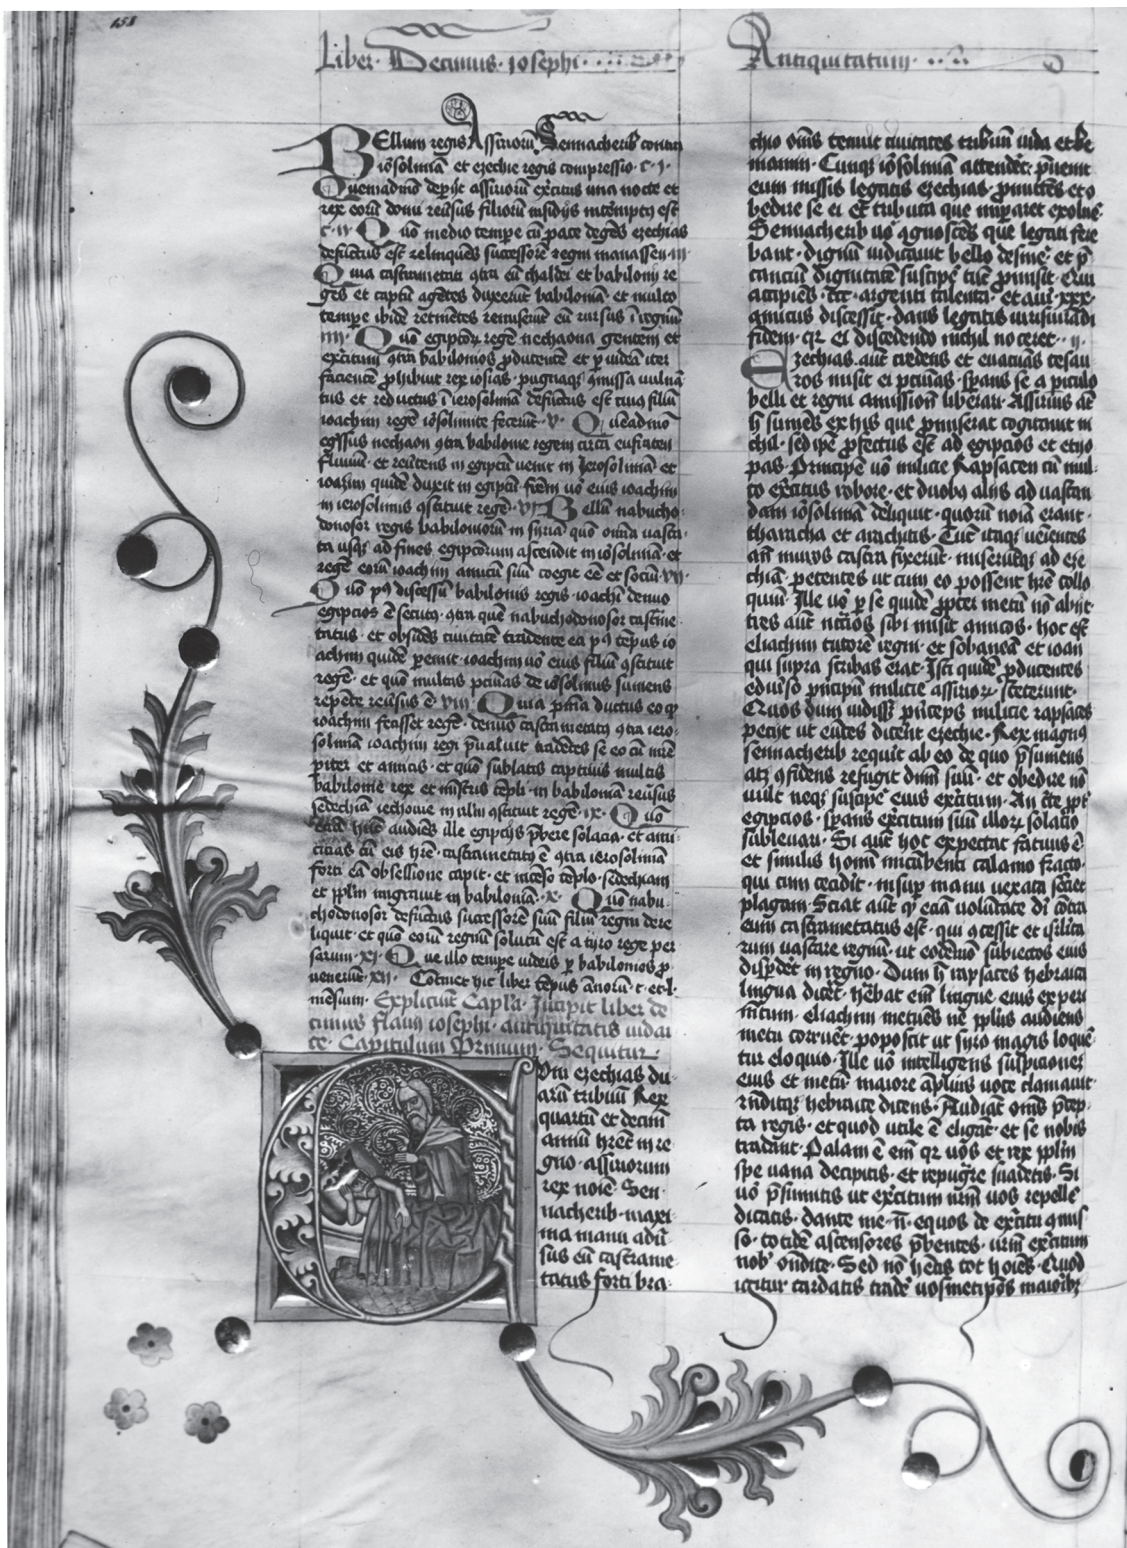 158
Liber Decimus iosephi
Antiquitatum
BEllum regis Assirioru Sennacherib contra
iosolimā et ezechie regis compressio c i
Quemadmodū depiit assirioru exercitus una nocte et
rex eorū domi reversus filiorū insidiis interemptus est
c ii Quō medio tempe cū pace degēs ezechias
defūctus est relinquēs successorē regni manassen iii
Quia castrametati ctra eū chaldei et babilonij re
ges et captū agētes duxerūt babilonia et multo
tempe ibidē retinētes remiserūt eū rursus ī regnū
iiii Quō egiptiorum regē nechaona gentem et
exercitum ctra babilonios producentē et per iudeā iter
facientē prohibuit rex iosias pugnaque comissa vulna
tus et reductus ī ierosolimā defūctus est cuius filiū
ioachim regē iosolimite fecerūt v Quēadmō
egressus nechaon ctra babilonie regem circa eufraten
fluvium et revertens in egiptū venit in Jerosolimā et
ioachim quidē duxit in egiptū fratrem vō eius ioachim
in ierosolimis cstituit regē vi Bellū nabucho
donosor regis babilonioru in siriā quō omīa vasta
ta usque ad fines egiptiorum ascendit in iosolimā et
regē eorū ioachim amicū suū coegit ēē et sociū vii
Quō post discessū babilonis regis ioachī denuo
egiptios ē secutus ctra quē nabuchodonosor castrame
tatus et obsidēs civitatē tradente ea post tēpus io
achim quidē peremit ioachim vō eius filiū cstituit
regē et quō multas pecunias de iosolimis sumens
repente reversus ē viii Quia penitentia ductus eo quod
ioachim fecisset regē denuo castrametatus ctra iero
solimā ioachim regi prevaluit tradētes se eo cū mre
piter et amicis et quō sublatis captivis multis
babilonie rex et ministeriis tēpli in babilonia reversus
sedechiā iechonie cstituit regē ix Quō
audiēs ille egiptijs prebere solacia et ami
citias cū eis hrē castrametatus ē ctra ierosolimā
forti eā obsessione capit et incēso tēplo sedechiam
et pplm migravit in babiloniā x Quō nabu
chodonosor defūctus successorē suū filiū regni dere
liquit et quō eorū regnū solutū est a cyro rege per
sarum xi Que illo tempe iudeis p babilonios p
venerūt xii Cōtinet hic liber tēpus ānorū c et l
mēsium Expliciunt Capla Jncipit liber de
cimus flavij iosephi antiquitatis iudai
ce Capitulum Primum Sequitur
Cum ezechias du
arū tribuū Rex
quartū et decimū
annū hrēt in re
gno assiriorum
rex noīe Sen
nacherib maxi
ma manu adū
sus eū castrame
tatus forti bra
chio oīns tenuit civitates tribuū iuda et be
niamin Cūque iosolimā attenderet pveniit
eum missis legatis ezechias pmittēs et o
bedire se ei et tributa que imparet exolvere
Sennacherib vō agnoscēs que legati fere
bant dignū iudicavit bello desinere et p
tanciū dignitatē suscipe tūc promisit Qui
accipiēs ccc argenti talenta et auri xxx
amicus discessit dans legatis iurisiurādi
fidem qr ei discedendo nichil noceret ii
Ezechias aut credens et evacuās tesau
ros misit ei pecunias sperans se a periculo
belli et regni amissione liberari Assirius aut
h sumēs ex his que promiserat cogitavit ni
chil sed ipē profectus est ad egiptios et ethio
pas Principē vō milicie Rapsacen cū mul
to exercitus robore et duobus aliis ad vastan
dam iosolimā dēliquit quorū noīa erant
tharatha et arachitis Tūc itaque venientes
an muros castra fixerūt miserūtque ad eze
chiā petentes ut cum eo possent hrē collo
quiū Ille vō p se quidē propter metū nō abiit
tres aut sibi misit amicos hoc est
eliachim tutorē regni et sobaneā et ioan
qui supra scribas erat Isti quidē producentes
principū milicie assirior steterunt
Quos dum vidisset princeps milicie rapsaces
petijt ut eūtes dicent ezechie Rex magnus
sennacherib requirit ab eo de quo presumens
atque cfidens refugit dnm suū et obedire nō
vult neque suscipe eius exercitum An certe ppt
egiptios sperans exercitum suū illorum solacio
sublevari Si aut hoc expectat fatuus ē
et similis homini incūbenti calamo fracto
qui cum cecidit insup manu vexata sentiet
plagam Sciat aut qz etiā voluntate di cōtra
eum castrametatus est qui ccessit et isrlita
rum vastare regnū ut eodem subiectos eius
disperdet in regno Dum h rapsaces hebraica
lingua diceret hēbat eni lingue eius experi
mtum eliachim metuēs ne pplus audiens
metu corrueret poposcit ut syro magis loque
tur eloquio Ille vō intelligens suspicionez
eius et metū maiore āplius voce clamavit
rnditque hebraice dicens Audiāt oms precep
ta regis et quod utile ē eligāt et se nobis
tradant Palam ē eni qr vos et rex pplm
spe vana decipitis et repugnare suadetis Si
vō presumitis ut exercitum nrm vos repelle
dicatis dante me equos de exercitu
so totidē ascensores prebentes vrm exercitum
nob ondite Sed nō hētis tot hoies Quod
igitur tardatis tradē vosmetipos maiorib